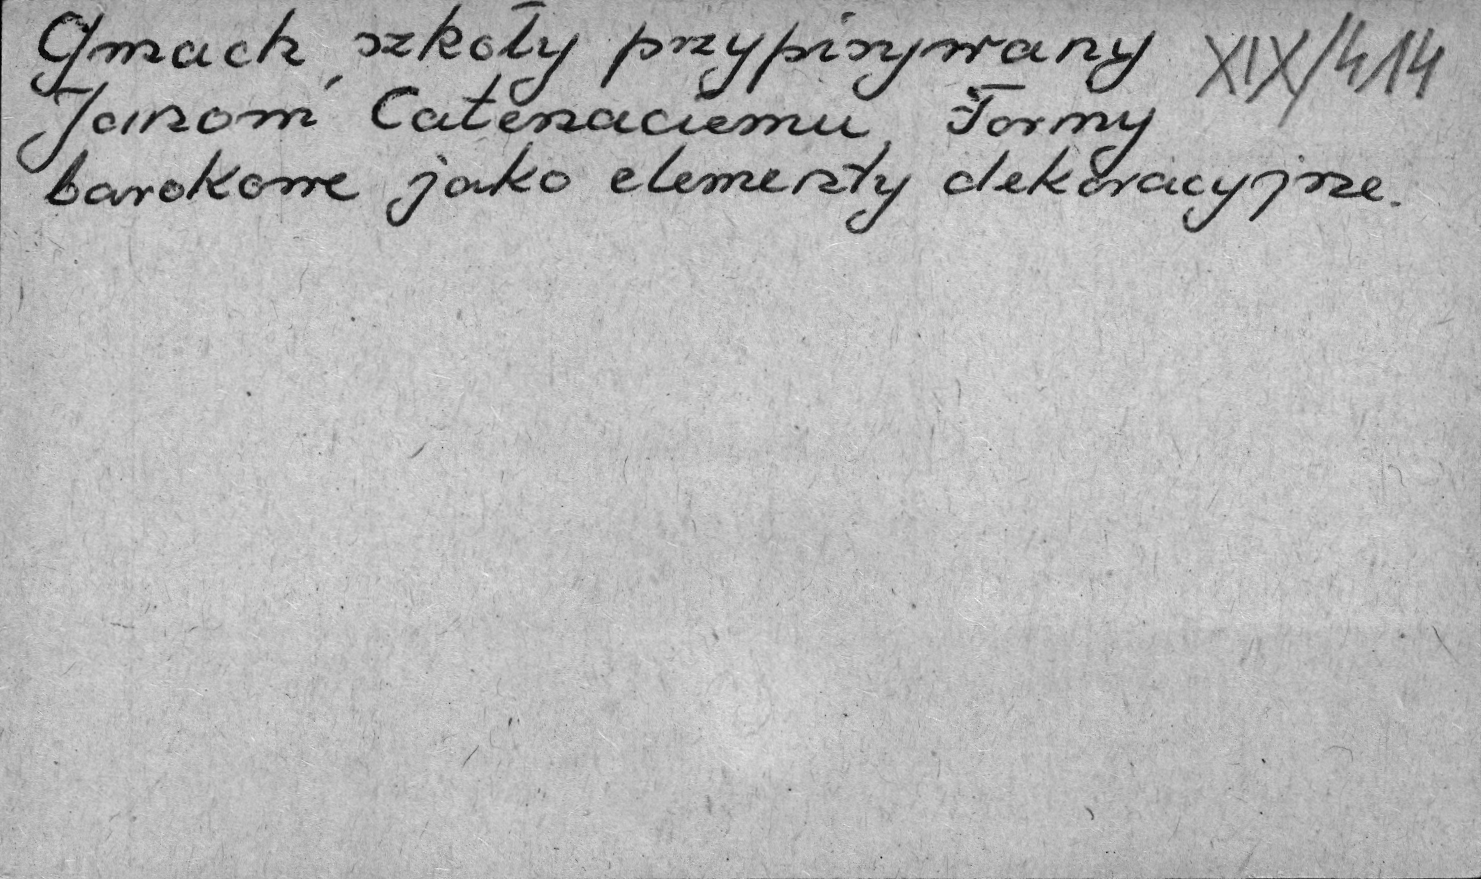 Gmach szkoły przypisywany XIX/414
Janowi Catenaciemu, Formy
barokowe jako elementy dekoracyjne.